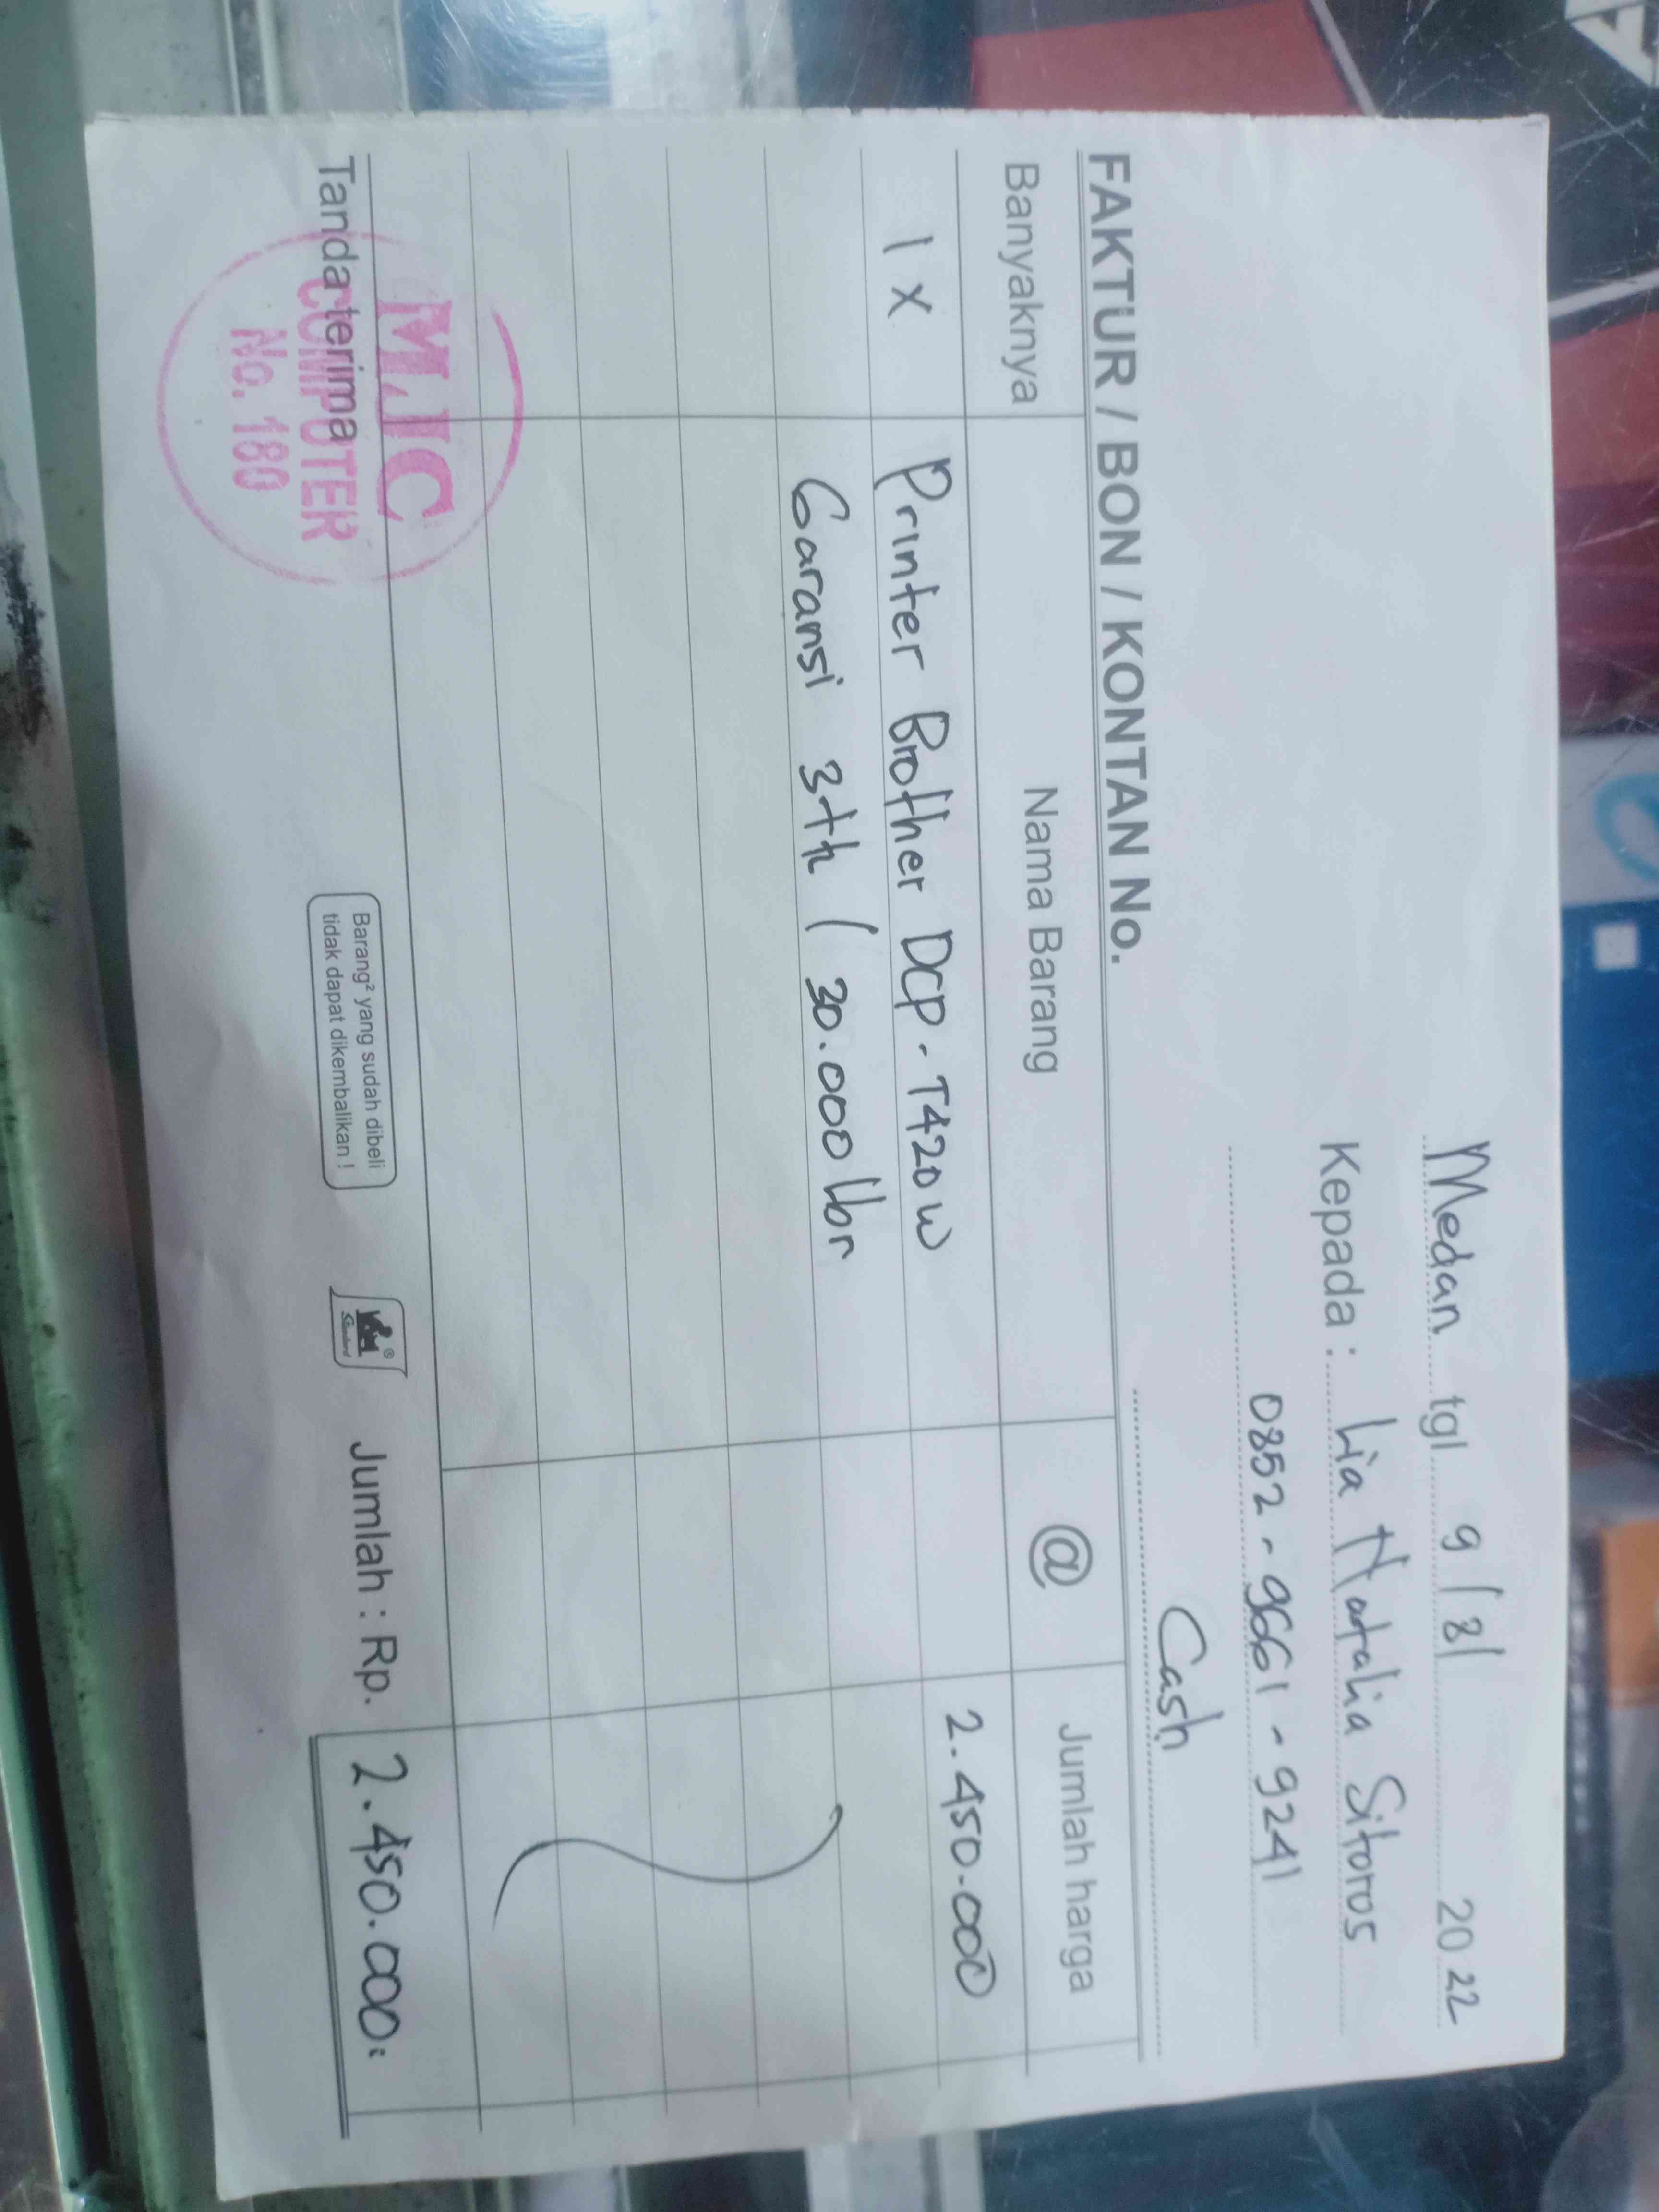 Medan tgl 9/8/ 2022
Kepada : Lia Natalia Sitorus
0852-9661-9241
Cash
FAKTUR / BON / KONTAN No.
Banyaknya Nama Barang @ Jumlah harga
1 x Printer Brother DCP-T420W 2.450.000
Garansi 3th / 30.000 lbr
Tanda terima
MJC
COMPUTER
No. 180
Barang² yang sudah dibeli
tidak dapat dikembalikan !
Jumlah : Rp. 2.450.000